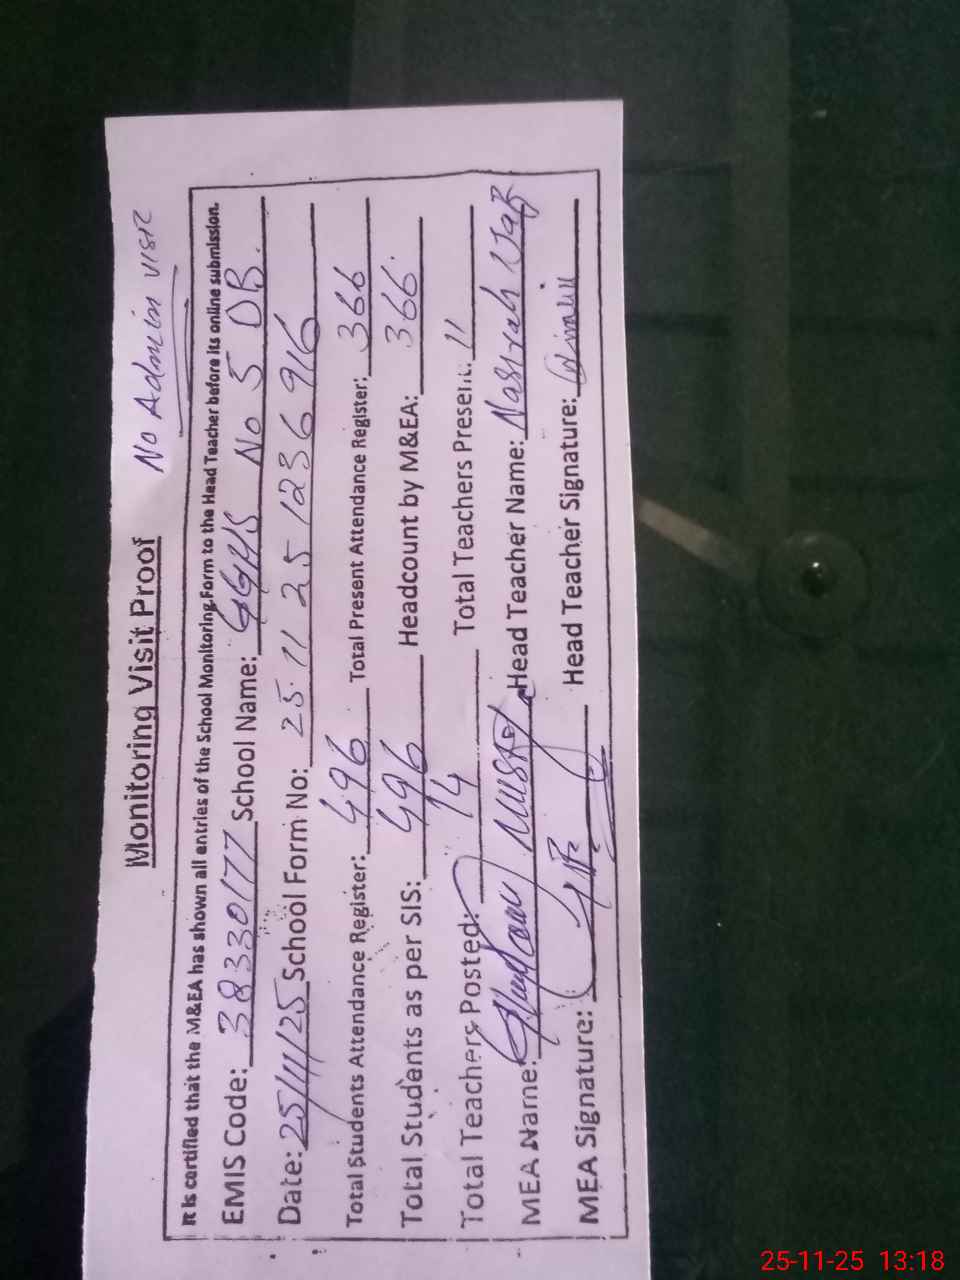 No Admin visit
Monitoring Visit Proof
It is certified that the M&EA has shown all entries of the School Monitoring Form to the Head Teacher before its online submission.
EMIS Code: 38330177 School Name: GGHS No 5 DB.
Date: 25/11/25 School Form No: 25 11 25 1236 916
Total Students Attendance Register: 496 Total Present Attendance Register: 366
Total Students as per SIS: 496 Headcount by M&EA: 366
Total Teachers Posted: 14 Total Teachers Present: 11
MEA Name: Head Teacher Name:
MEA Signature: Head Teacher Signature:
25-11-25 13:18